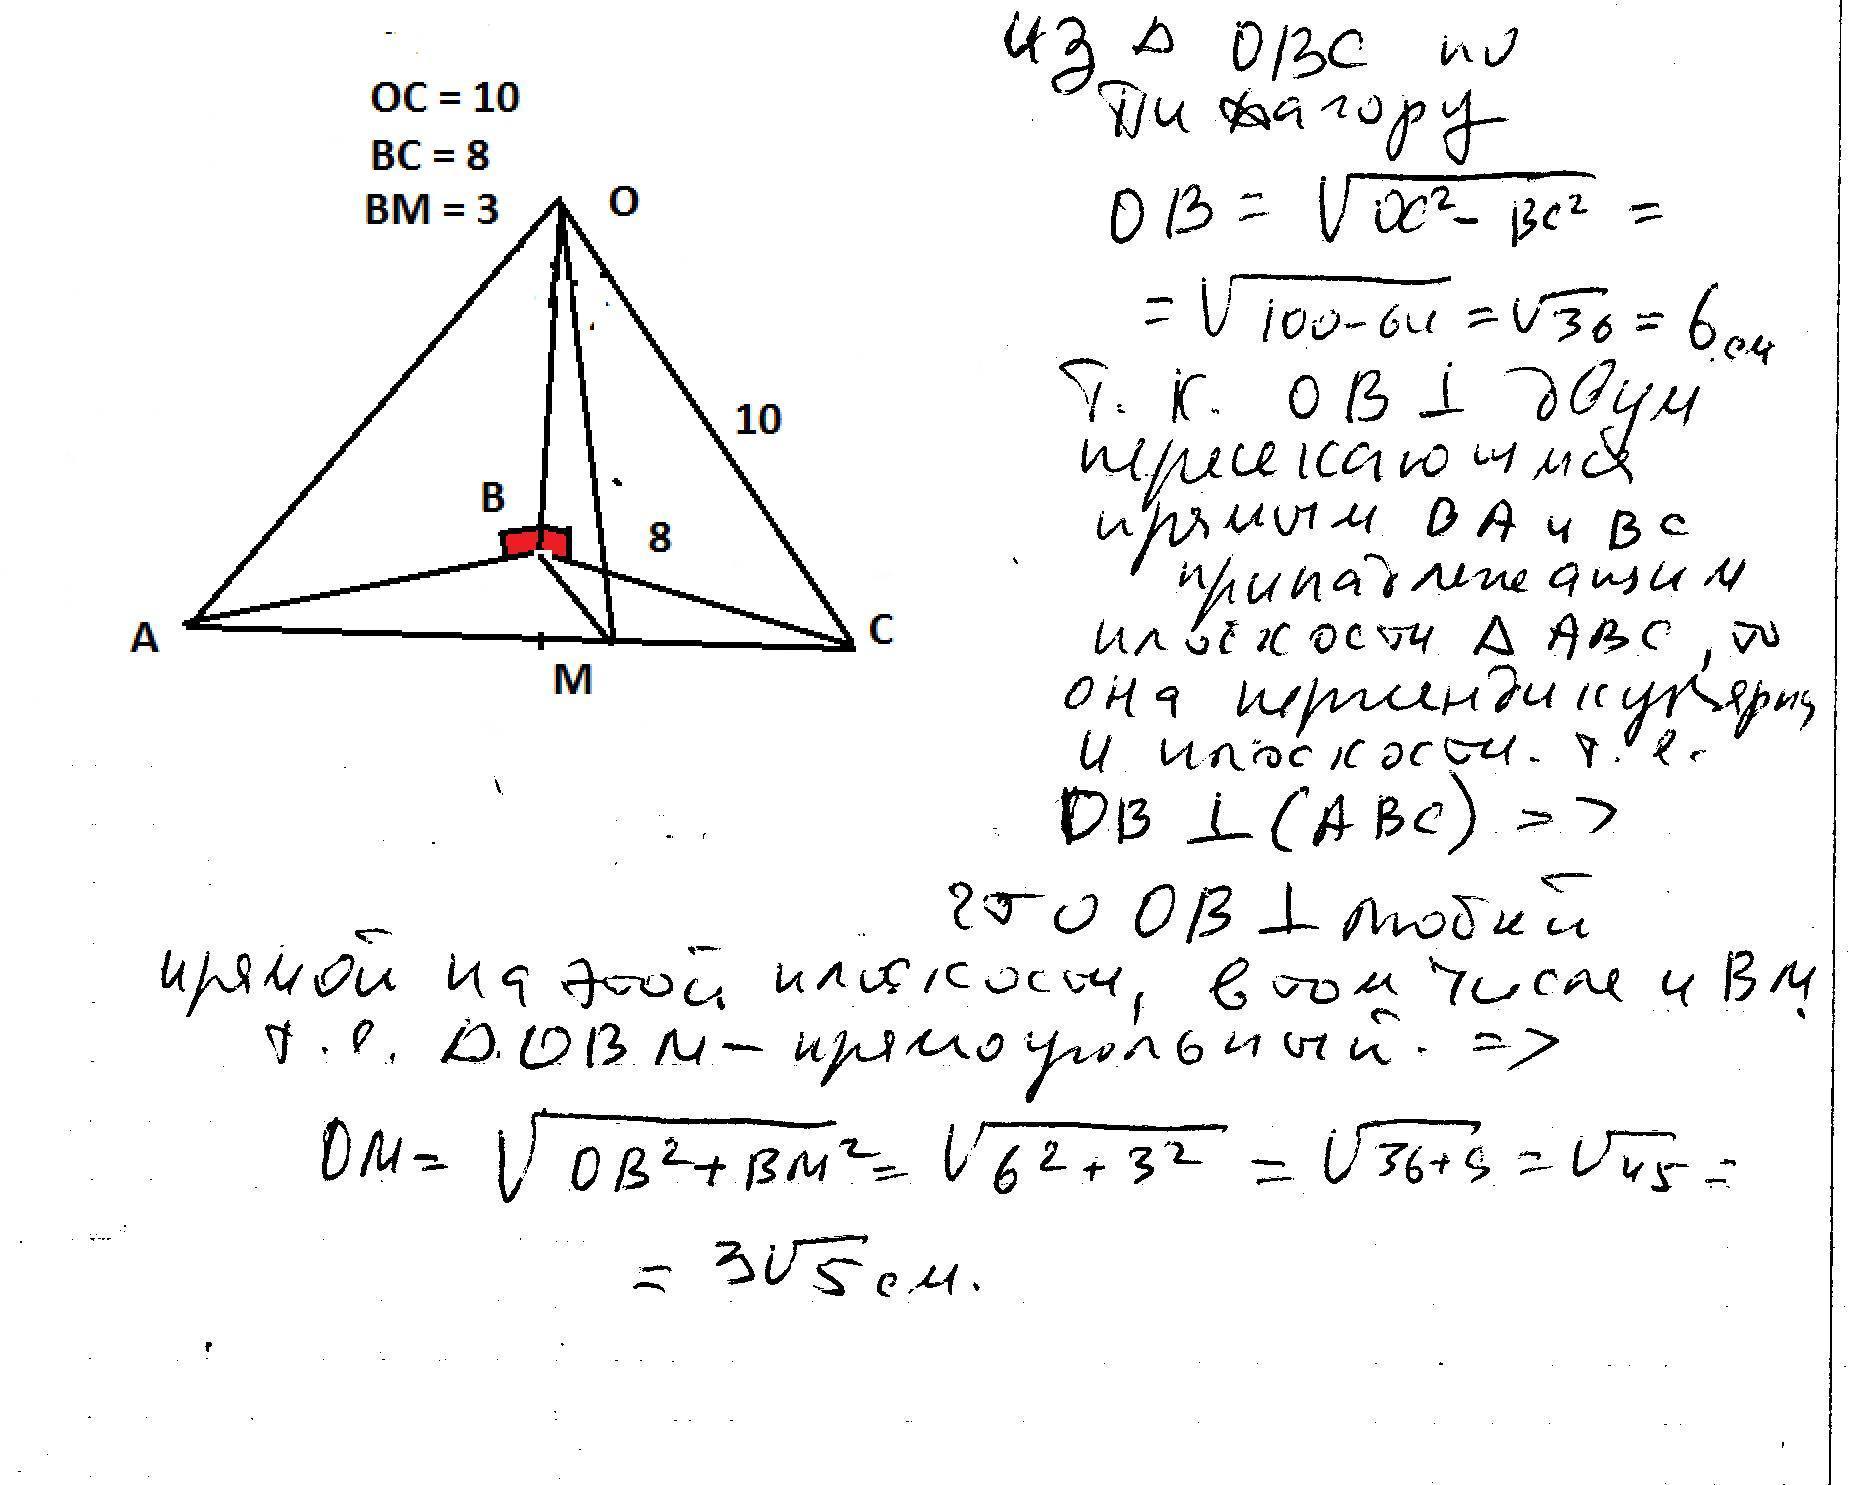 OC = 10
BC = 8
BM = 3
O
10
B
8
A
C
M
из Δ OBC по
Пифагору
OB = √OC² - BC² =
= √100-64 = √36 = 6 см
Т. к. OB ⊥ двум
пересекающимся
прямым BA и BC
принадлежащим
плоскости Δ ABC, то
она перпендикулярна
и плоскости. т. е.
OB ⊥ (ABC) =>
что OB ⊥ любой
прямой на этой плоскости, в том числе и BM.
т. е. Δ OBM – прямоугольный. =>
OM = √OB²+BM² = √6²+3² = √36+9 = √45 =
= 3√5 см.